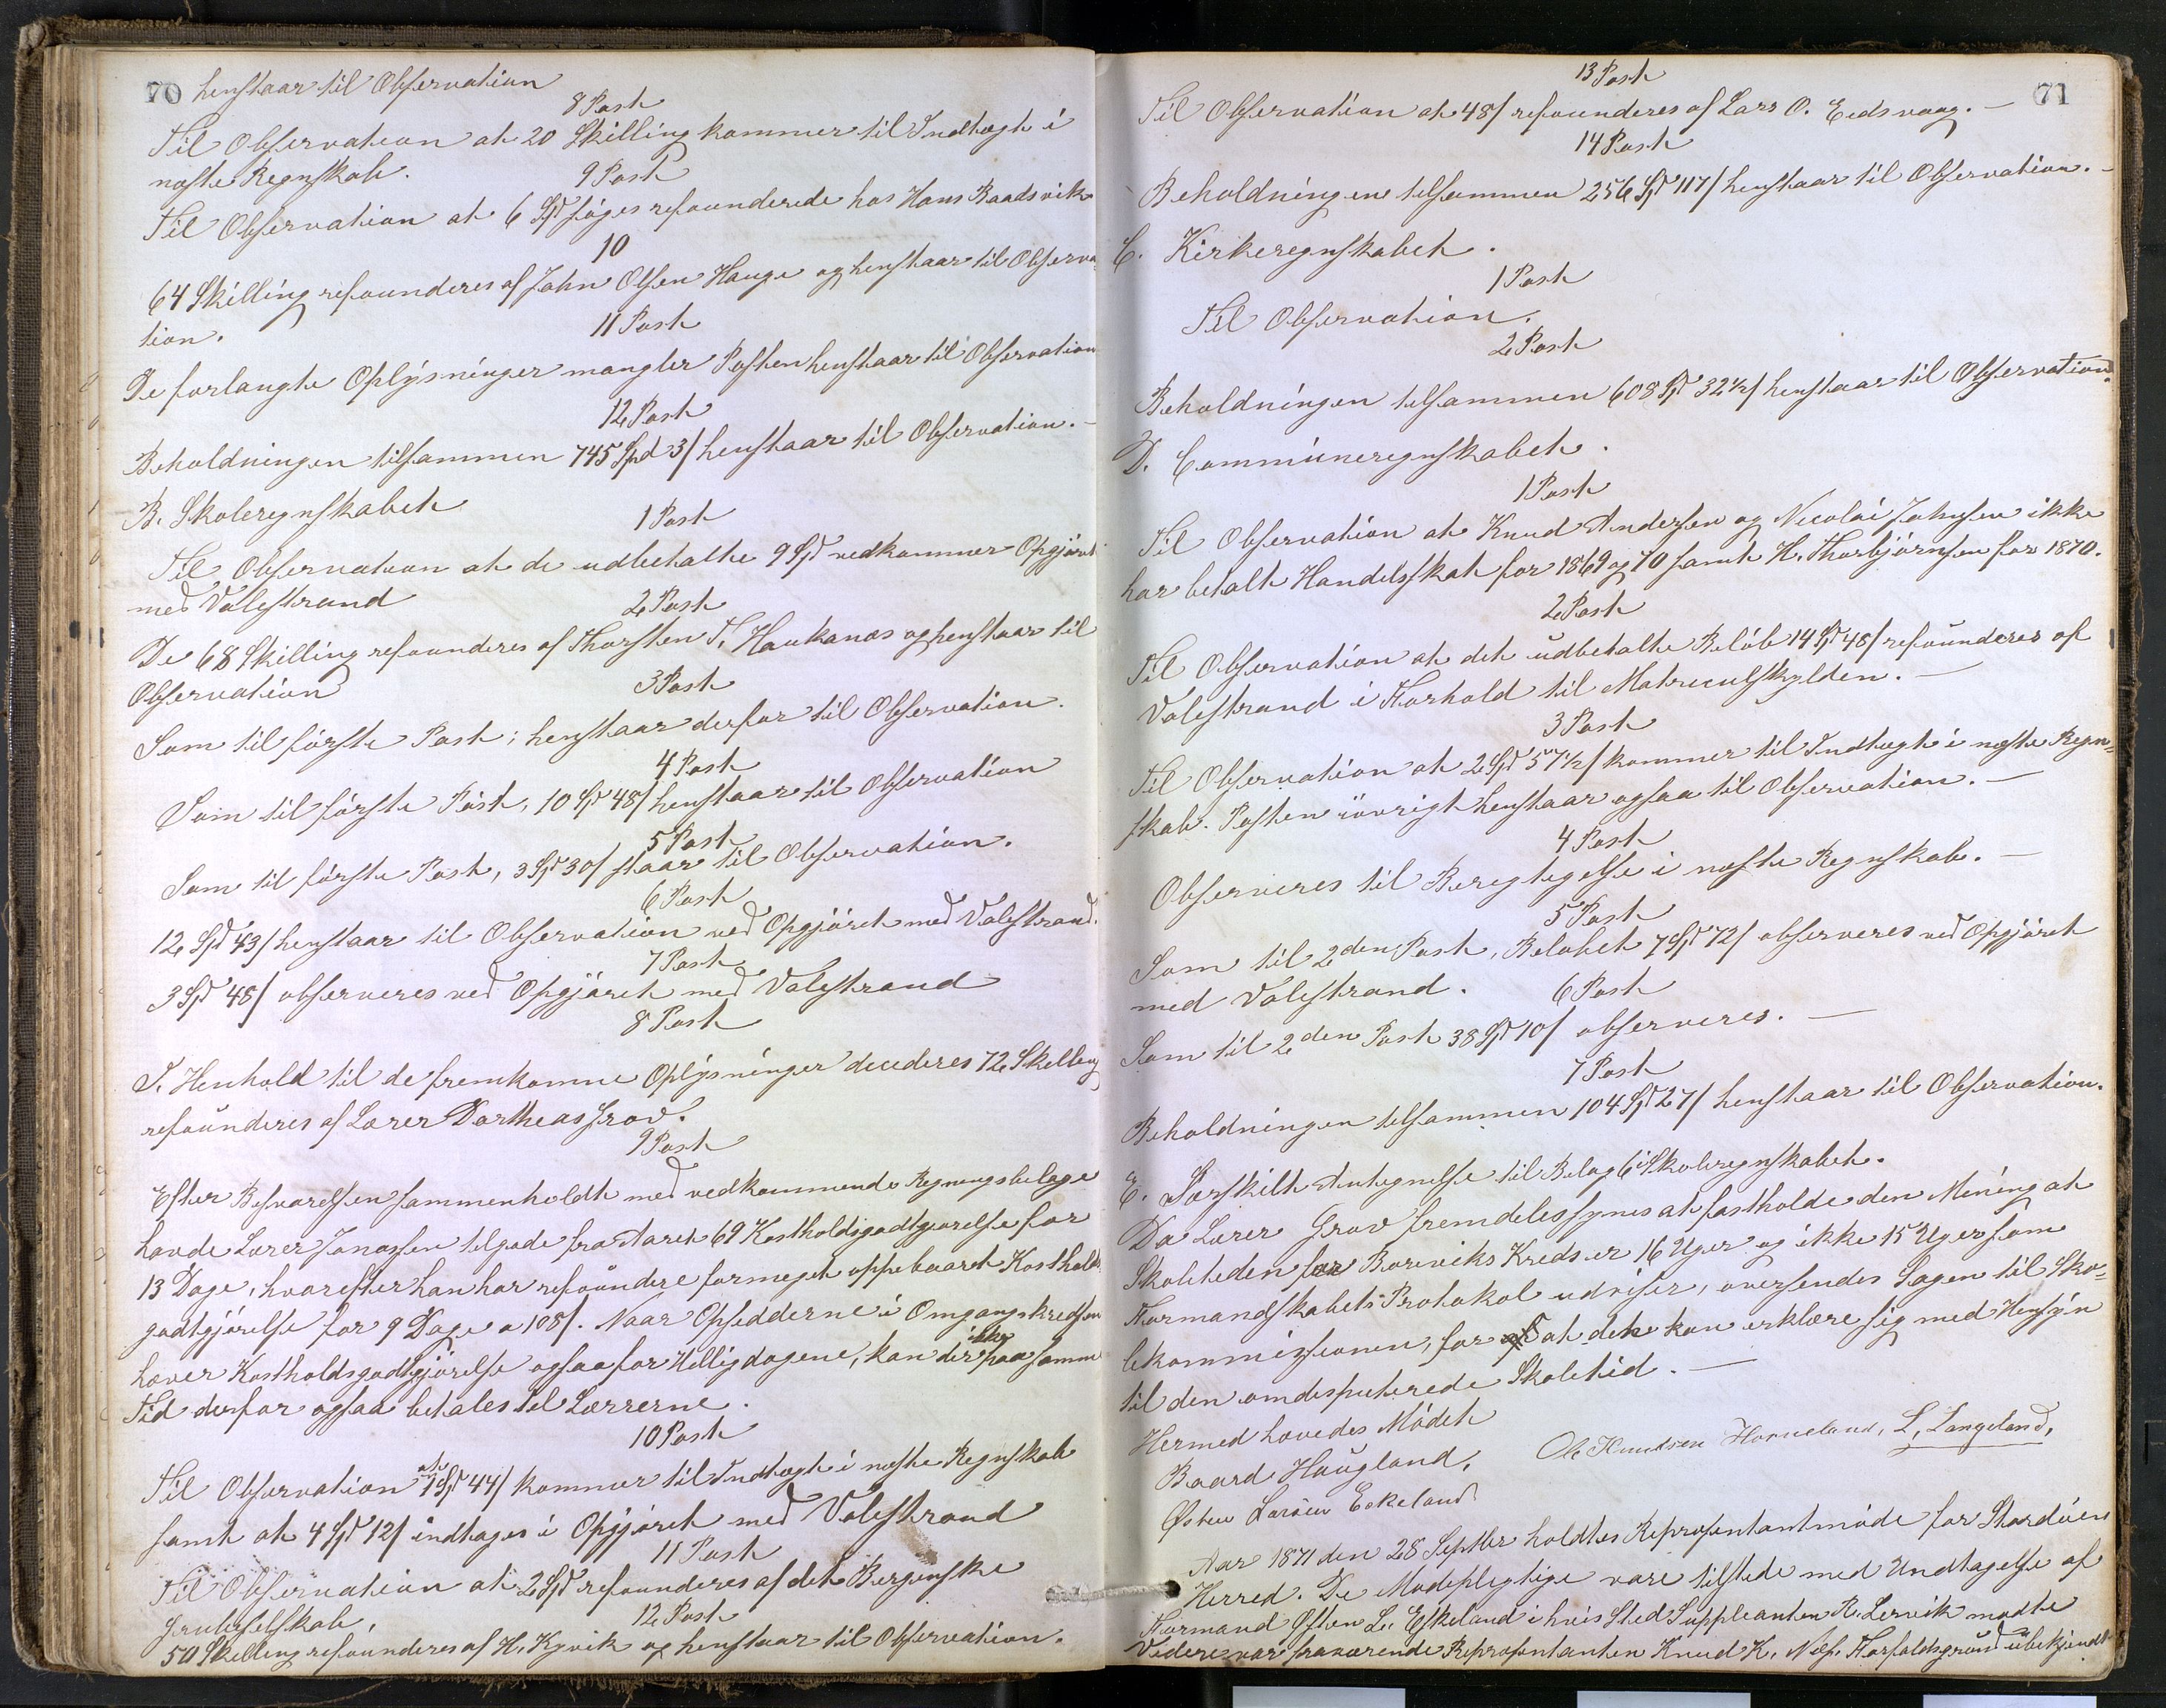 70 henstaar til Observation
8 Post
Til Observation at 20 Skilling kommer til Indtægt i
næste Regnskab.
9 Post
Til Observation at 6 Spd søges refounderede hos Hans Baadsvik
10
64 Skilling refounderes af John Olsen Hauge og henstaar til Observa-
tion.
11 Post
De forlangte Oplysninger mangler Posten henstaar til Observation
12 Post
Beholdningen tilsammen 745 Spd 3/ henstaar til Observation.-
B. Skoleregnskabet
1 Post
Til Observation at de udbetalte 9 Spd vedkommer Opgjöret
med Valestrand
2 Post
De 68 Skilling refounderes af Thorsten T. Haukanæs og henstaar til
Observation
3 Post
Som til förste Post; henstaar derfor til Observation.
4 Post
Som til förste Post, 10 Spd 48/ henstaar til Observation
5 Post
Som til förste Post, 3 Spd 30/ staar til Observation.
6 Post
12 Spd 43/ henstaar til Observation ved Opgjöret med Valestrand.
7 Post
3 Spd 48/ observeres ved Opgjöret med Valestrand
8 Post
I Henhold til de fremkomne Oplysninger decideres 72 Skilling
refounderes af Lærer Dortheas Grov.
9 Post
Efter Besvarelsen sammenholdt med vedkommende Regningsbelage
havde Lærer Jonassen tilgode fra Aaret 69 Kostholdsgodtgjorelse for
13 Dage, hvorefter han har refoundere formeget oppebaaret Kosthold
godtgjörelse for 9 Dage a 108/. Naar Opsidderne i Omgangskredsen
haver Kostholdsgodtgjörelse ogsaa for Helligdagene, kan der ikke paa samme
Tid derfor ogsaa betales til Lærerne.
10 Post
Til Observation at 1 Spd 44/ kommer til Indtægt i næste Regnskab
samt at 4 Spd 12/ indtages i Opgjöret med Valestrand
11 Post
Til Observation at 2 Spd refounderes af det Bergenske
Grubeselskab.
12 Post
50 Skilling refounderes af H. Kyvik og henstaar til Observation.
71
13 Post
Til Observation at 48/ refounderes af Lars O. Eidsvaag.-
14 Post
Beholdningene tilsammen 256 Spd 117/ henstaar til Observation.-
C. Kirkeregnskabet.
1 Post
Til Observation.
2 Post
Beholdningen tilsammen 608 Spd 32½/ henstaar til Observation.
D. Communeregnskabet.
1 Post
Til Observation at Knud Andersen og Nicolai Johnsen ikke
har betalt Handelsskat for 1869 og 70 samt H. Thorbjörnsen for 1870.
2 Post
Til Observation at det udbetalte Belöb 14 Spd 48/ refounderes af
Valestrand i Forhold til Matriculskylden.-
3 Post
Til Observation at 2 Spd 57½/ kommer til Indtægt i næste Regn=
skab. Posten iövrigt henstaar ogsaa til Observation.-
4 Post
Observeres til Berigtigelse i næste Regnskab.-
5 Post
Som til 2den Post, Belöbet 7 Spd 72/ observeres ved Opgjöret
med Valestrand.
6 Post
Som til 2den Post 38 Spd 10/ observeres.-
7 Post
Beholdningen tilsammen 104 Spd 27/ henstaar til Observation.
E. Særskilt Antegnelse til Belag 6 i Skoleregnskabet.
Da Lærer Grov fremdeles synes at fastholde den Mening at
Skoletiden for Boreviks Kreds er 16 Uger og ikke 15 Uger som
Formandskabets Protokol udviser, oversendes Sagen til Sko=
lekommissionen, for at den kan erklære sig med Hensyn
til den omdisputerede Skoletid.-
Hermed hævedes Mödet
Baard Haugland, Ole Knudsen Horneland, L. Langeland,
Østen Larsen Eskeland
Aar 1871 den 28 Septber holdtes Repræsentantmöde for Stordöens
Herred. De Mödepligtige vare tilstede med Undtagelse af
Formand Østen L. Eskeland i hvis Sted Suppleanten R. Lervik mødte
Videre var fraværende Repræsentanten Knud K. Næs. Forfaldsgrund ubekjendt